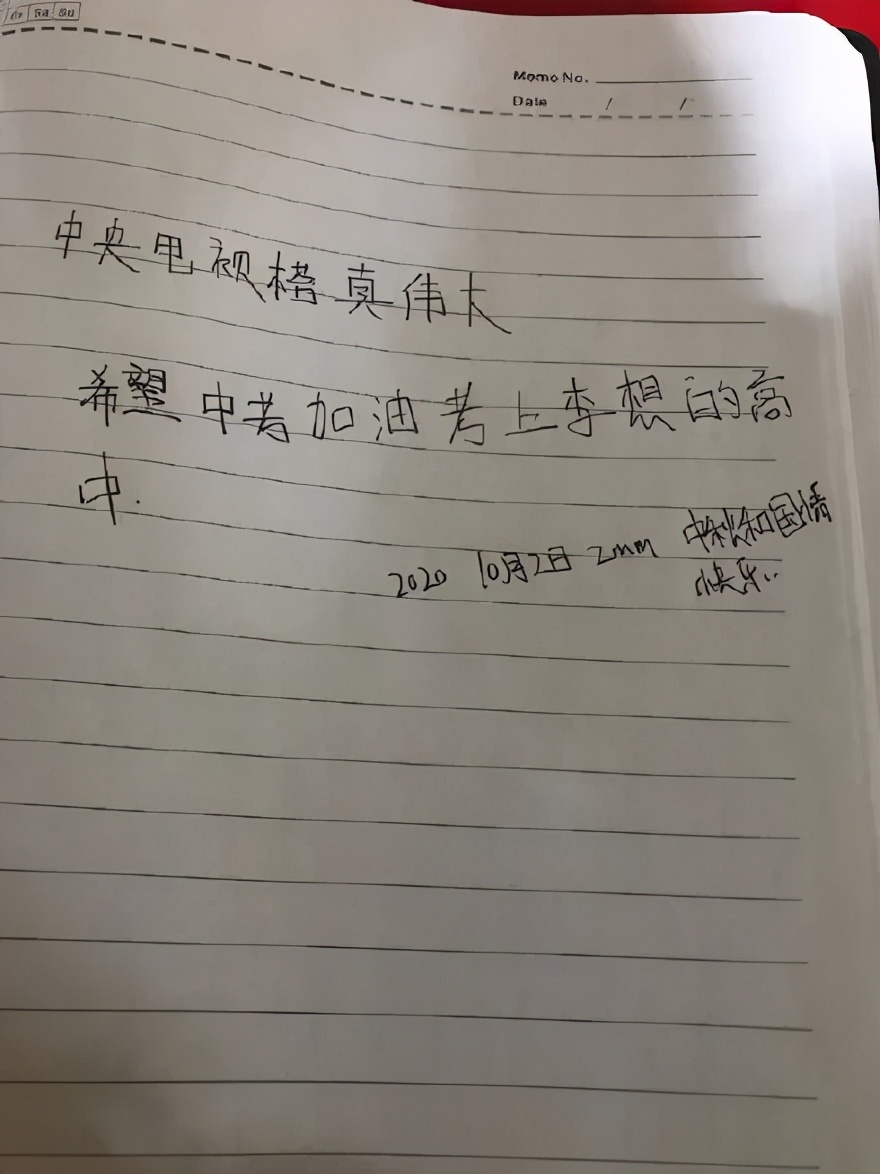 Memo No.
Date / /
中央电视榙真伟大
希望中考加油考上李想的高
中.
2020 10月2日 zmm 中秋和国情
快乐..